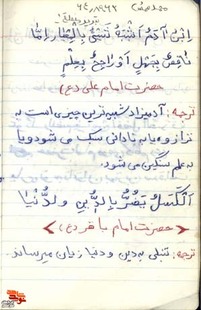 ابْنُ آدَمَ أَشْبَهُ شَیْءٍ بِالْمِعْیارِ اِمّا
ناقِصٌ بِجَهْلٍ اَوْ راجِحٌ بِعِلْمٍ
حضرت امام علی (ع)
ترجمه: آدمیزاد شبیه ترین چیزی است به
ترازو یا به نادانی سبک می شود و یا
به علم سنگین می شود.
اَلْکَسَلُ یَضُرُّ بِالدّینِ وَ الدُّنْیا
حضرت امام باقر (ع)
ترجمه: تنبلی به دین و دنیا زیان میرساند.